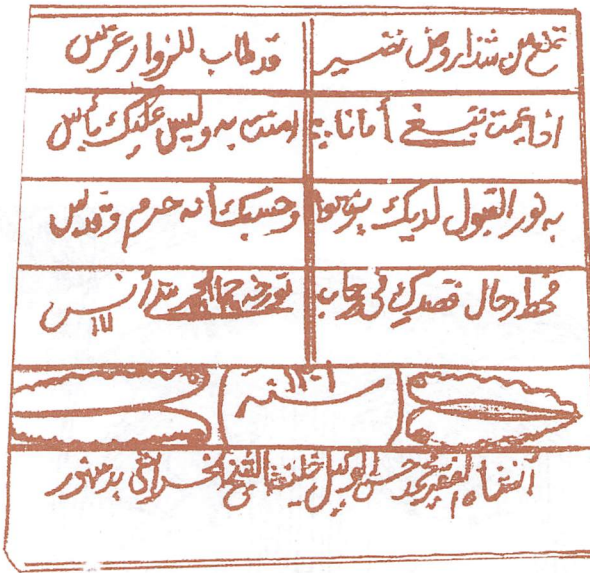 تمتع من شذا روض نضير قد طاب للزوار غرس
اذا يممت تبتغي أمانا امنت به وليس عليك بأس
به نور القبول لديك وحسبك أنه حرم وقدس
فحط رحال قصدك في رحاب تورخه أنس
سنة
أنشاه الفقير محمد حسن الوكيل خليفة الشيخ بدمنهور